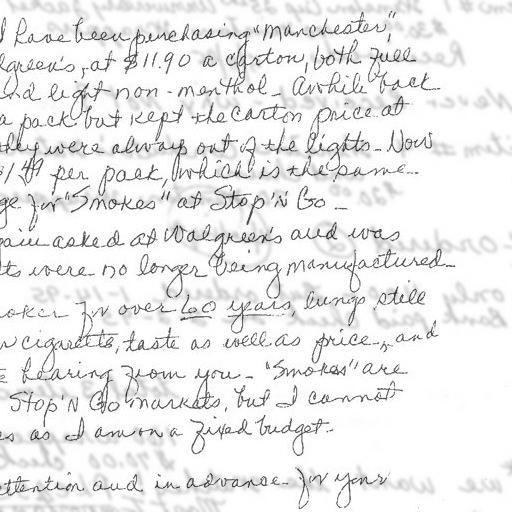 I have been purchasing "Manchester",
lgreen's, at $11.90 a carton, both full
and light non-menthol - Awhile back
a pack but kept the carton price at
they were always out of the lights - Now
per pack, which is the same
ge for "Smokes" at Stop 'N Go -
gain asked at Walgreen's and was
ts were no longer being manufactured -
oker for over 60 years, lungs still
cigarette, taste as well as price -, and
hearing from you - "Smokes" are
Stop 'N Go markets, but I cannot
es as I am on a fixed budget -
attention and in advance for your